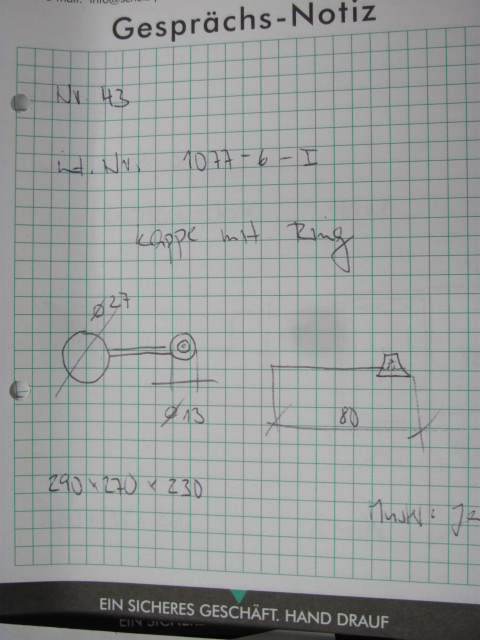 Gesprächs-Notiz
Nr. 43
id. Nr. 1077-6-I
Kappe mit Ring
ø 27
ø 13
80
290 x 270 x 230
EIN SICHERES GESCHÄFT. HAND DRAUF